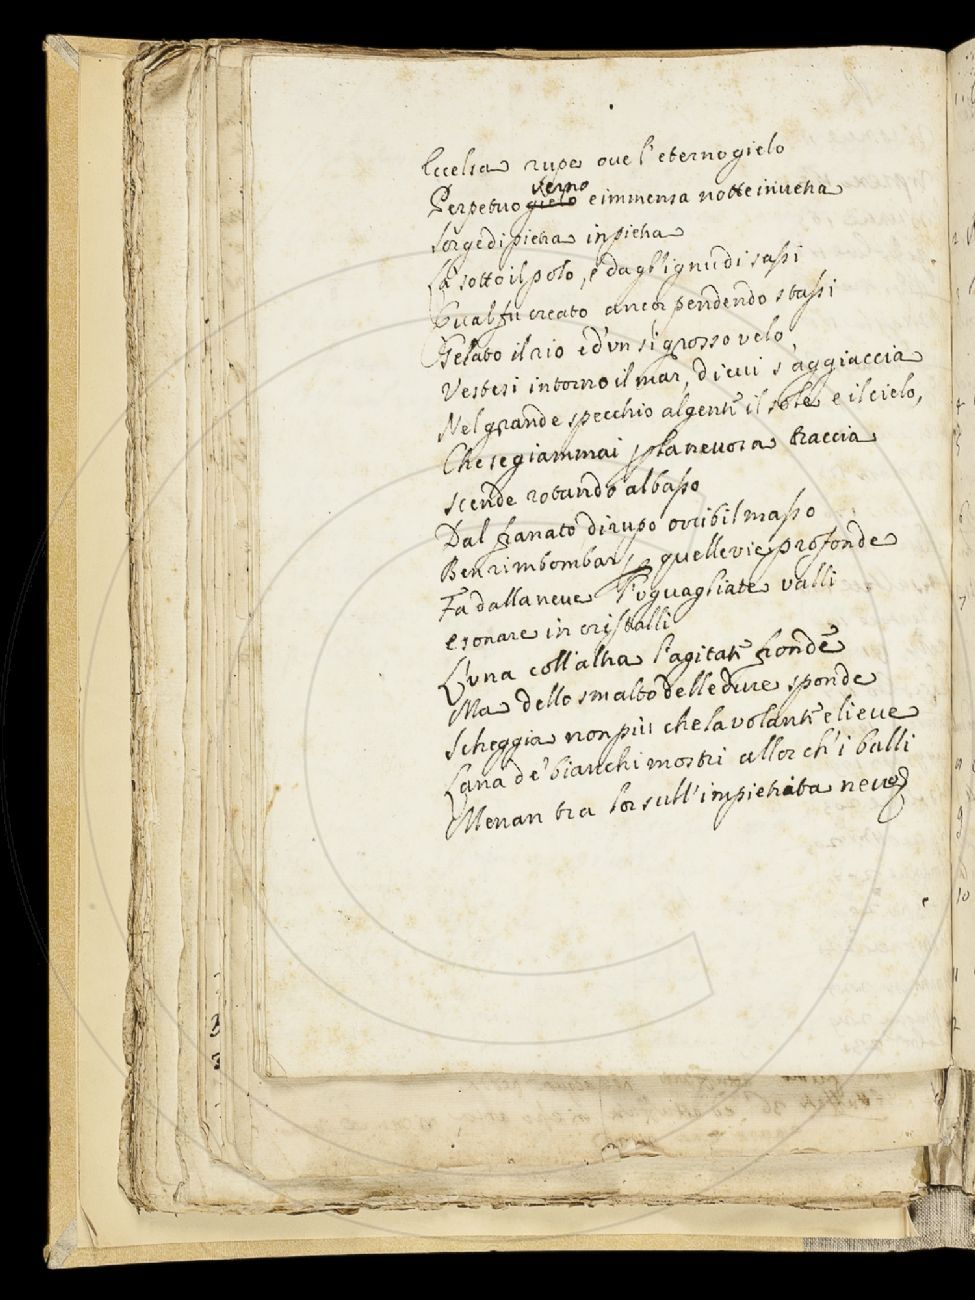 Eccelsa rupe ove l'eterno gielo
Perpetuo gielo verno e immensa notte invetra
Sorge di pietra in pietra
Là sotto il polo, e dagl'ignudi sassi
Qual fu creato ancor pendendo stassi
Gelato il rio ed'un sì grosso velo
Vestesi intorno il mar, di cui s'aggiaccia
Nel grande specchio algente il sole e il cielo,
Che se giammai p la nevosa traccia
scende rotando al basso
Dal franato dirupo orribil masso
Ben rimbombar p quelle vie profonde
Fa dalla neve l'uguagliate valli
e sonare in cristalli
L'una coll'altra l'agitate fronde
Ma dello smalto delle dure sponde
Scheggia non più che la volante e lieve
Lana de' bianchi mostri allor ch'i balli
Menan tra lor sull'impietrita neve